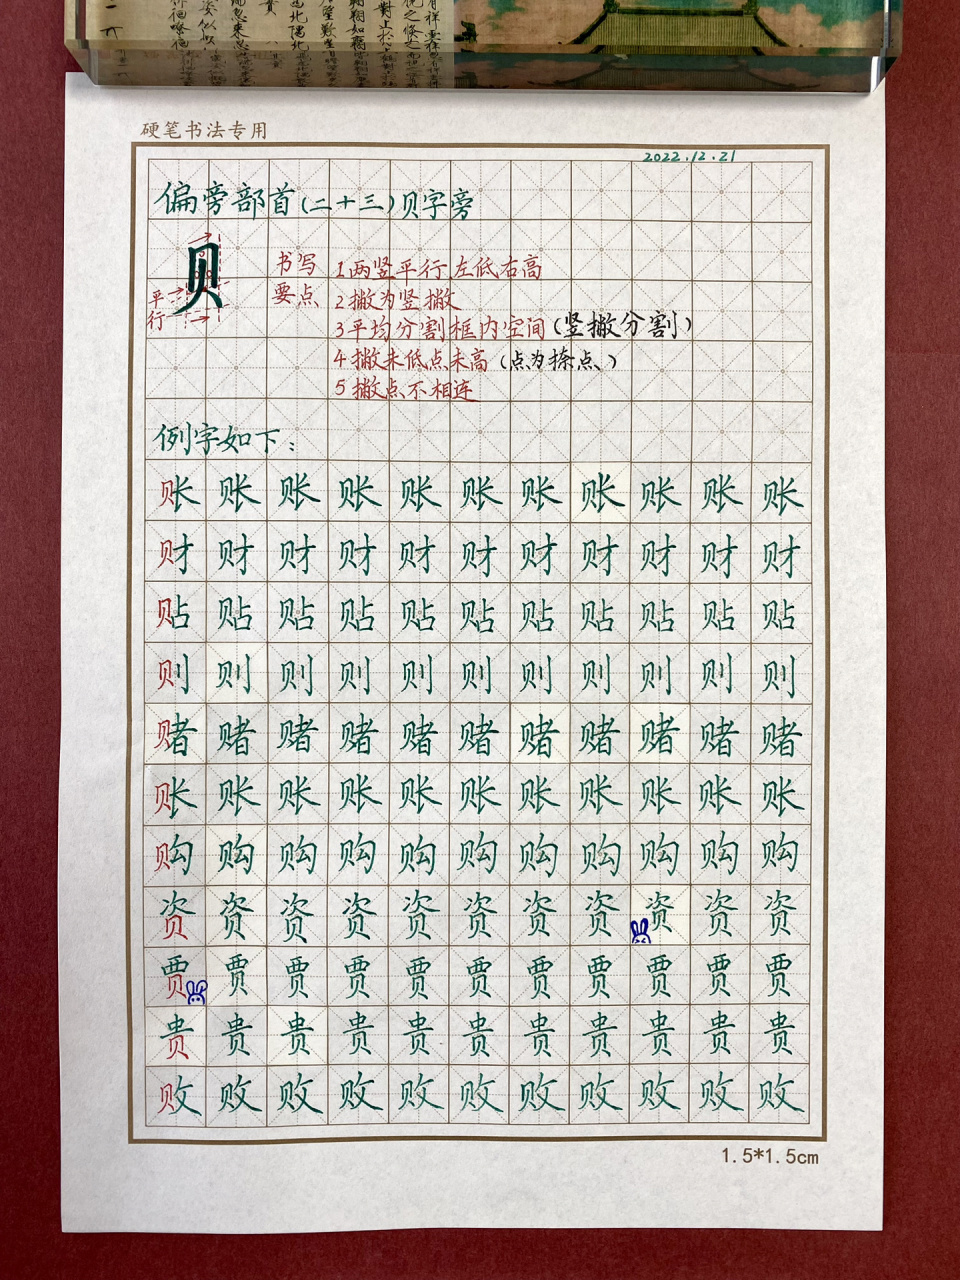 硬笔书法专用
2022.12.21
偏旁部首(二十三)贝字旁
贝
平行
书写要点
1两竖平行,左低右高
2撇为竖撇
3平均分割框内空间(竖撇分割)
4撇未低点未高(点为捺点、)
5撇点不相连
例字如下:
账账账账账账账账账账账
财财财财财财财财财财财
贴贴贴贴贴贴贴贴贴贴贴
则则则则则则则则则则则
赌赌赌赌赌赌赌赌赌赌赌
账账账账账账账账账账账
购购购购购购购购购购购
资资资资资资资资资资资
贾贾贾贾贾贾贾贾贾贾贾
贵贵贵贵贵贵贵贵贵贵贵
败败败败败败败败败败败
1.5*1.5cm